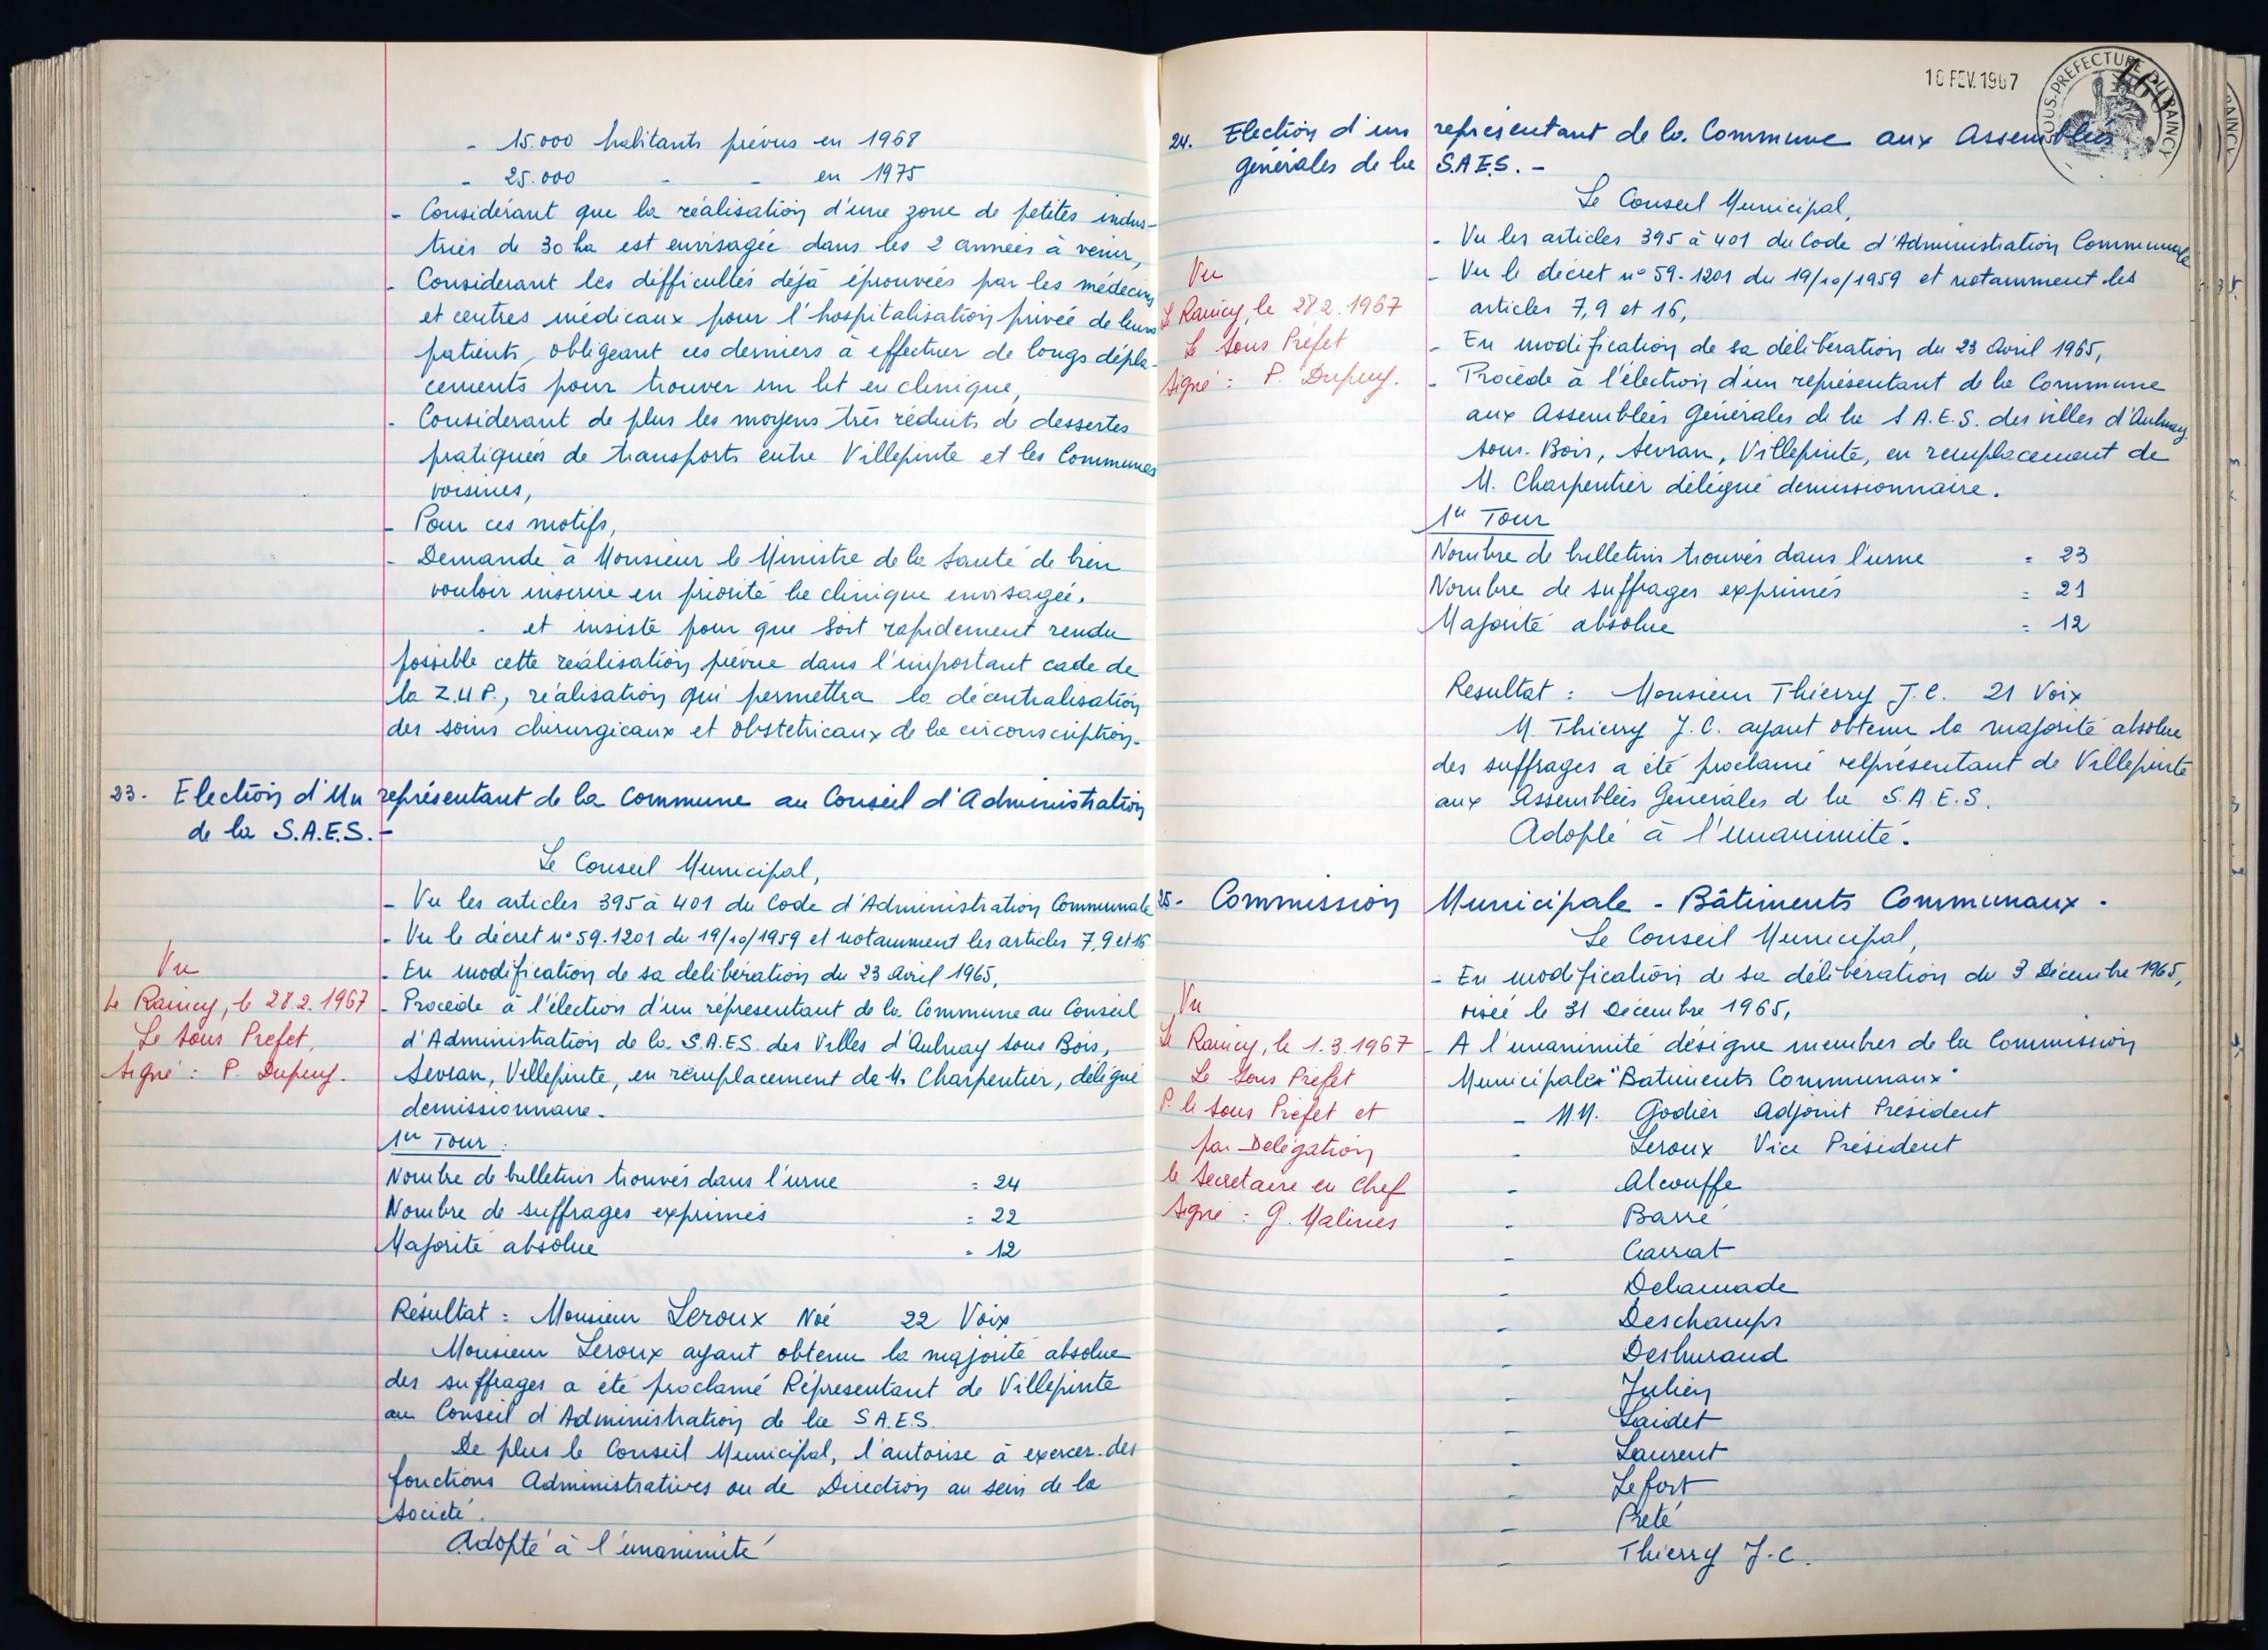 - 15.000 habitants prévus en 1968
- 25.000 - - en 1975
- Considérant que la réalisation d'une zone de petites indus-
tries de 30 ha est envisagée dans les 2 années à venir,
- Considerant les difficultés déjà éprouvées par les médecins
et centres médicaux pour l'hospitalisation privée de leurs
patients, obligeant ces derniers à effectuer de longs dépla-
cements pour trouver un lit en clinique,
- Considerant de plus les moyens très réduits de dessertes
pratiquées de transports entre Villepinte et les Communes
voisines,
- Pour ces motifs,
- Demande à Monsieur le Ministre de la Santé de bien
vouloir inscrire en priorité la clinique envisagée,
- et insiste pour que soit rapidement rendu
possible cette réalisation prévue dans l'important cade de
la Z.U.P., réalisation qui permettra la décentralisation
des soins chirurgicaux et obstetricaux de la circonscription.
23. Election d'Un représentant de la Commune au Conseil d'Administration
de la S.A.E.S. -
Le Conseil Municipal,
- Vu les articles 395 à 401 du Code d'Administration Communale
- Vu le décret n° 59.1201 du 19/10/1959 et notamment les articles 7, 9 et 16
- En modification de sa deliberation du 23 Avril 1965,
- Procède à l'élection d'un réprésentant de la Commune au Conseil
d'Administration de la S.A.E.S. des Villes d'Aulnay sous Bois,
Sevran, Villepinte, en remplacement de M. Charpentier, délégué
demissionnaire.
Vu
Le Raincy, le 28.2.1967
Le Sous Prefet,
Signé : P. Dupuy.
1er Tour :
Nombre de bulletins trouvés dans l'urne = 24
Nombre de suffrages exprimés = 22
Majorité absolue = 12
Résultat : Monsieur Leroux Noé 22 Voix
Monsieur Leroux ayant obtenu la majorité absolue
des suffrages a été proclamé Réprésentant de Villepinte
au Conseil d'Administration de la S.A.E.S.
De plus le Conseil Municipal, l'autorise à exercer des
fonctions Administratives ou de Direction au sein de la
Société.
Adopté à l'unanimité
16 FEV. 1967
SOUS-PREFECTURE DU RAINCY
24. Election d'un représentant de la Commune aux Assemblées
générales de la S.A.E.S. -
Le Conseil Municipal,
- Vu les articles 395 à 401 du Code d'Administration Communale
- Vu le décret n° 59.1201 du 19/10/1959 et notamment les
articles 7, 9 et 16,
- En modification de sa délibération du 23 Avril 1965,
- Procède à l'élection d'un représentant de la Commune
aux Assemblées Générales de la S.A.E.S. des villes d'Aulnay
sous-Bois, Sevran, Villepinte, en remplacement de
M. Charpentier délégué demissionnaire.
Vu
Le Raincy, le 28 2. 1967
Le Sous Préfet
Signé : P. Dupuy.
1er Tour
Nombre de bulletins trouvés dans l'urne = 23
Nombre de suffrages exprimés = 21
Majorité absolue = 12
Resultat : Monsieur Thierry J.C. 21 Voix
M. Thierry J.C. ayant obtenu la majorité absolue
des suffrages a été proclamé réprésentant de Villepinte
aux Assemblées Générales de la S.A.E.S.
Adopté à l'unanimité.
25- Commission Municipale - Bâtiments Communaux.
Le Conseil Municipal,
- En modification de sa délibération du 3 Décembre 1965,
visée le 31 Décembre 1965,
- A l'unanimité désigne membres de la Commission
Municipales "Batiments Communaux"
Vu
Le Raincy, le 1.3.1967
Le Sous Préfet
P. le Sous Préfet et
par Delégation
le Secretaire en Chef
Signé : G. Malines
- MM. Godier Adjoint Président
- Leroux Vice Président
- Alcouffe
- Barré
- Carrat
- Delamade
- Deschamps
- Deshuraud
- Julien
- Laidet
- Laurent
- Lefort
- Preté
- Thierry J.C.